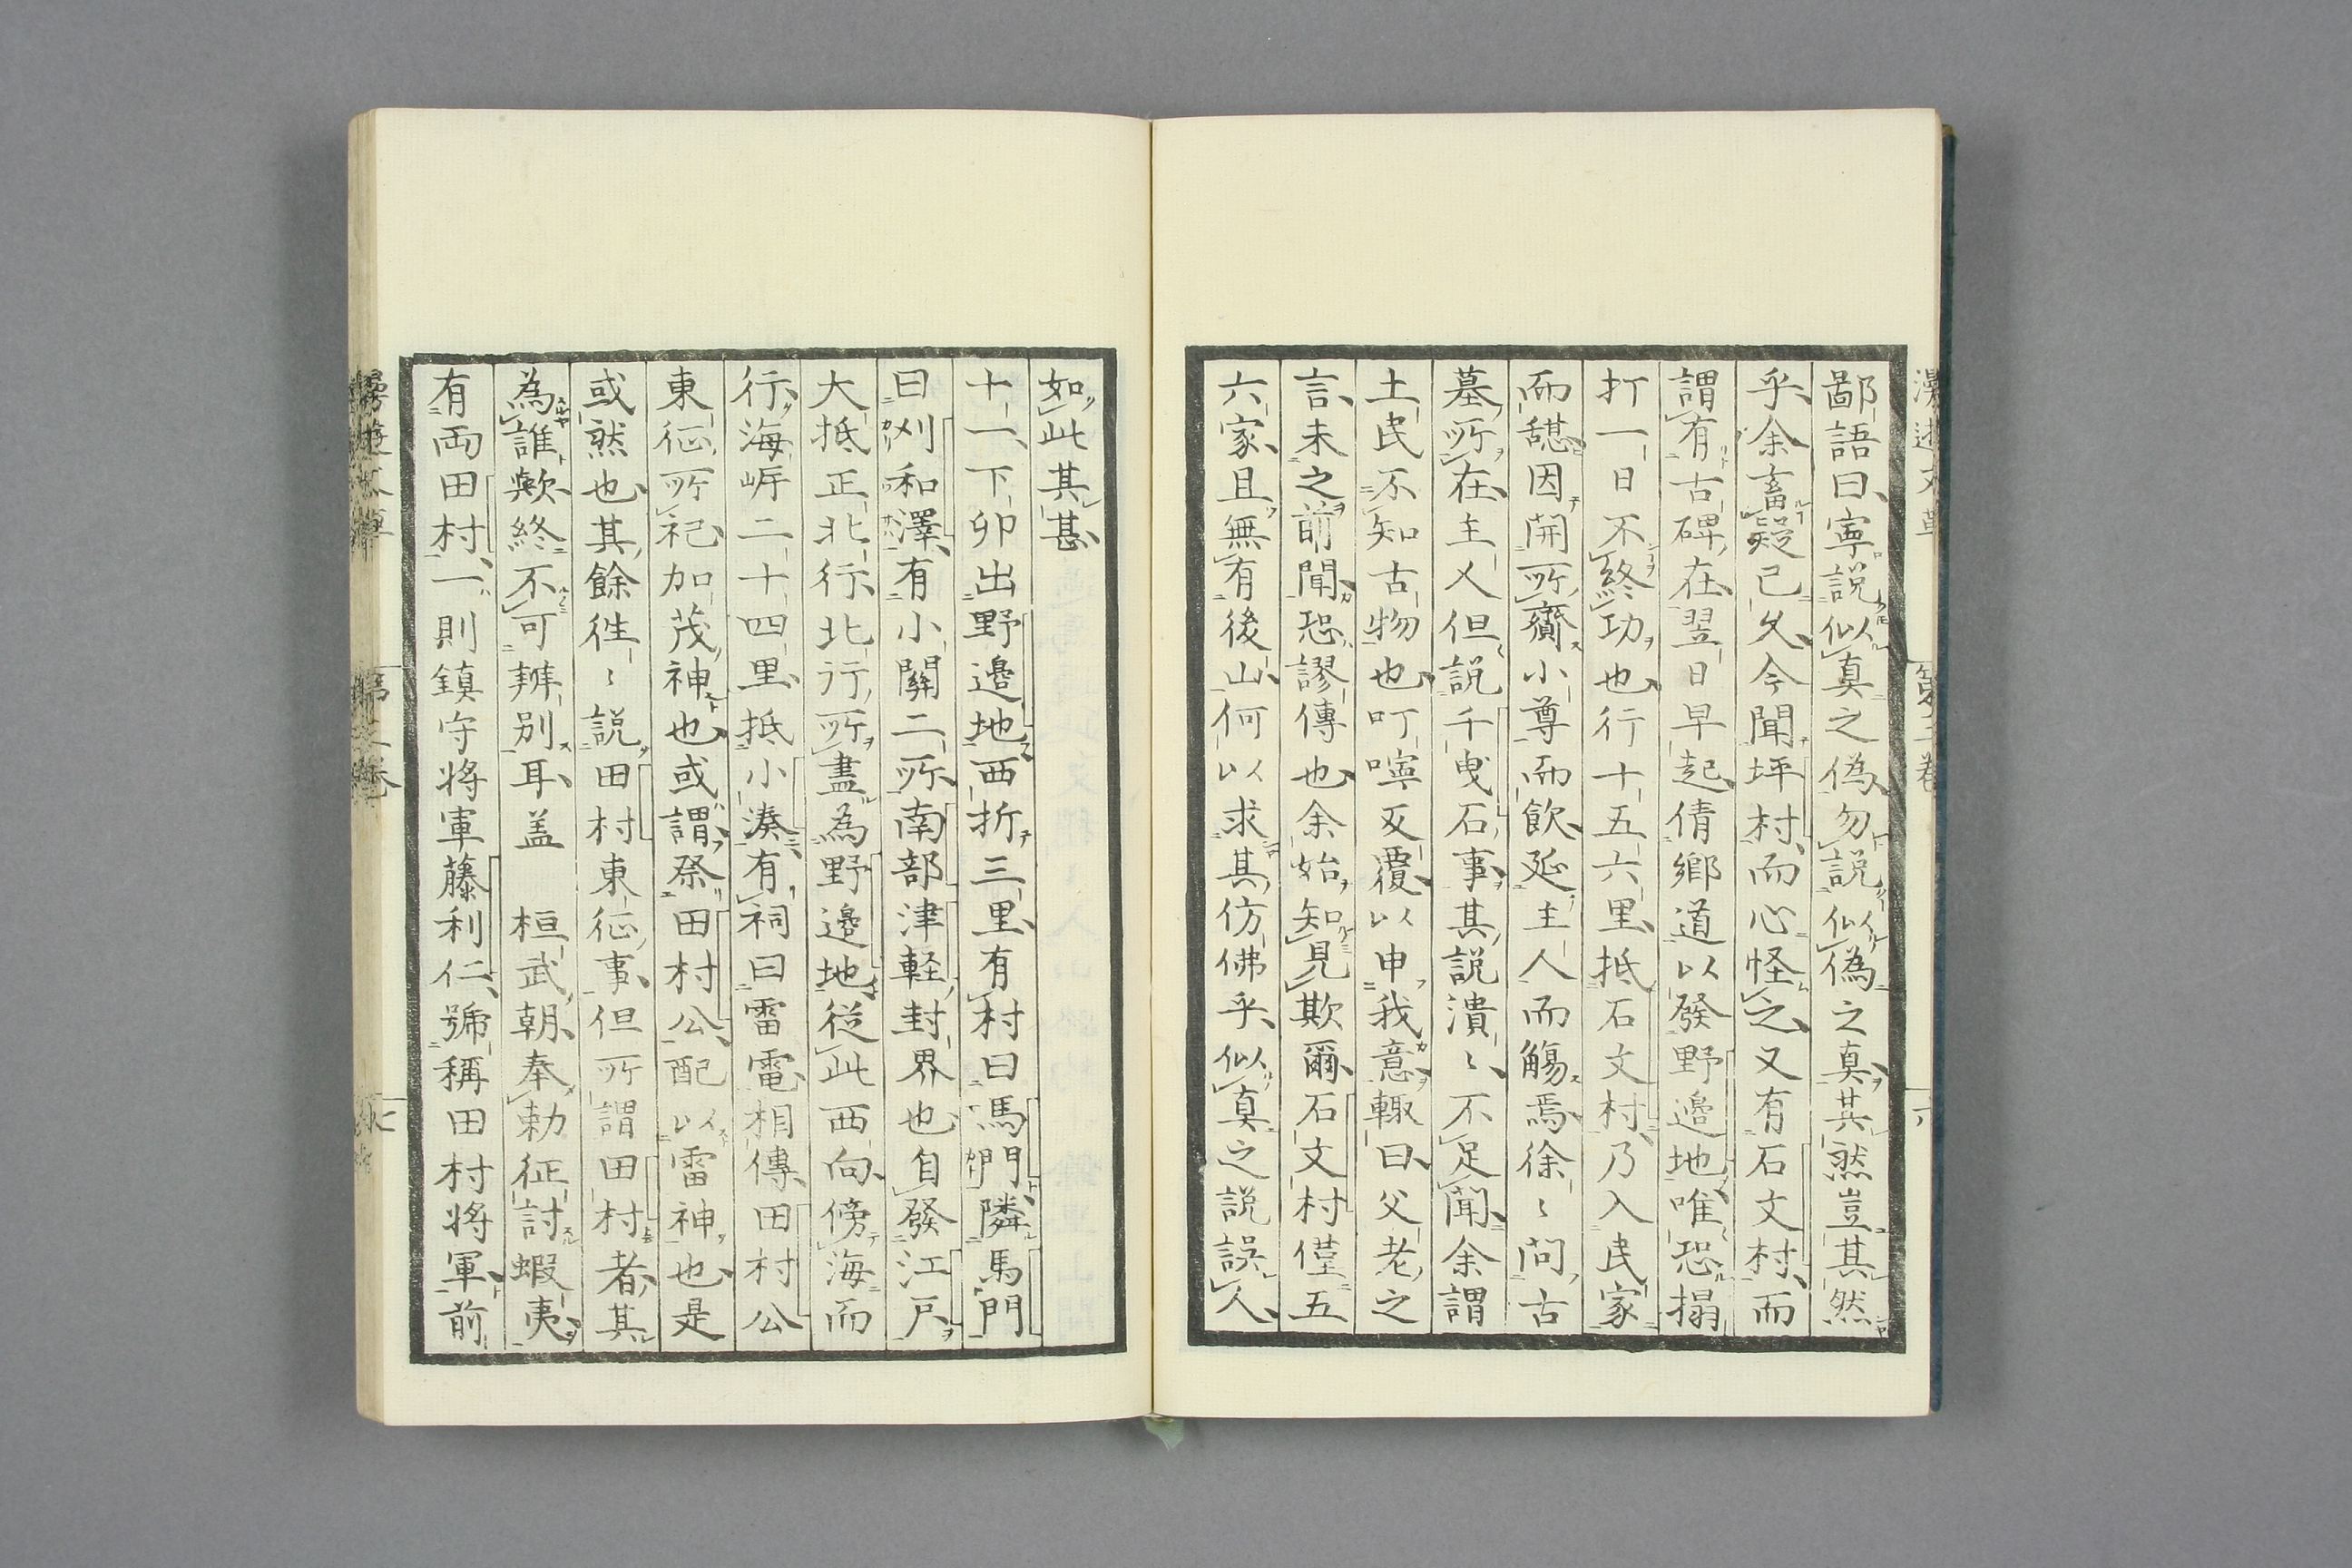 鄙語曰寧説似真之偽勿説似偽之真其然豈其然
乎余畜疑已久今聞坪村而心怪之又有石文村而
謂有古碑在翌日早起倩鄉道以發野邉地唯恐搨
打一日不終功也行十五六里抵石文村乃入民家
而憇因開所齎小尊而飲延主人而觴焉徐〻問古
墓所在主人但説千曳石事其説潰〻不足聞余謂
土民不知古物也叮嚀反覆以申我意輙曰父老之
言未之前聞恐謬傳也余始知見欺爾石文村僅五
六家且無有後山何以求其仿佛乎似真之説誤人
如此其甚
十一下卯出野邉地西折三里有村曰馮門隣馬門
曰刈和澤有小關二所南部津軽封界也自發江戸
大抵正北行北行所盡為野邉地従此西向傍海而
行海岸二十四里抵小湊有祠曰雷電相傳田村公
東征所祀加茂神也或謂祭田村公配以雷神也是
或然也其餘徃〻説田村東征事但所謂田村者其
為誰歟終不可辨別耳盖　桓武朝奉勅征討蝦夷
有両田村一則鎮守将軍藤利仁號稱田村将軍前